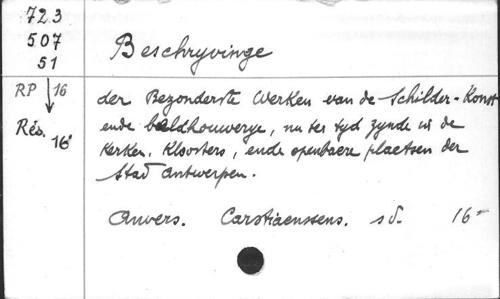 723
507
51
Beschryvinge
RP 16
Rés. 16°
der Bezonderste Werken van de Schilder-Konst
ende beeldhouwerye, nu ter tyd zynde in de
Kerken, Kloosters, ende openbaere plaetsen der
Stad Antwerpen.
Anvers. Carstiaenssens. sd. 16-